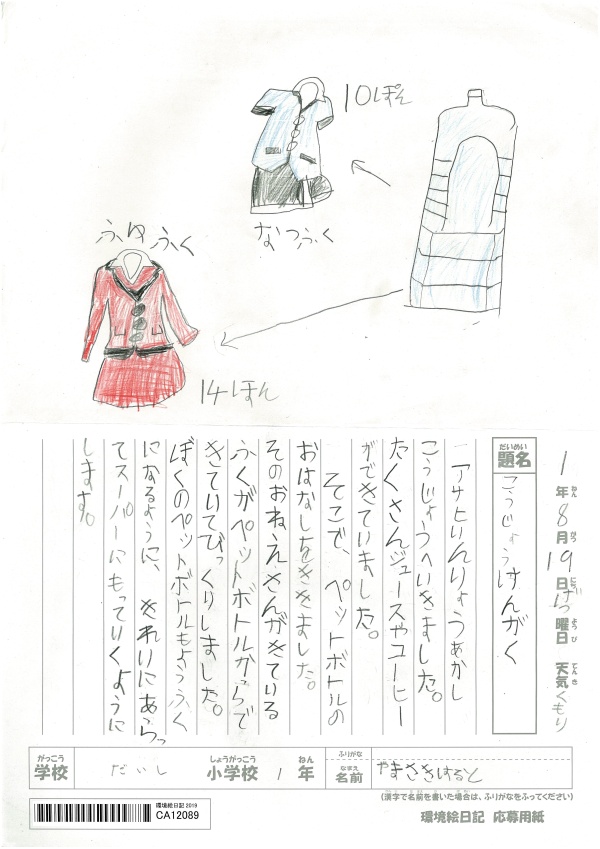 10ぽん
なつふく
ふゆふく
14ほん
1年8月19日げつ曜日 天気くもり
ねん
がつ
にち
ようび
てんき
だいめい
題名
こうじょうけんがく
アサヒいんりょうあかし
こうじょうへいきました。
たくさんジュースやコーヒー
ができていました。
そこで、ペットボトルの
おはなしをききました。
そのおねえさんがきている
ふくがペットボトルからで
きていてびっくりしました。
ぼくのペットボトルもようふく
になるように、きれいにあらっ
てスーパーにもっていくように
します。
がっこう
学校
だいし
しょうがっこう
小学校
1
ねん
年
ふりがな
なまえ
名前
やまさきはると
(漢字で名前を書いた場合は、ふりがなをふってください)
環境絵日記 2019
CA12089
環境絵日記 応募用紙